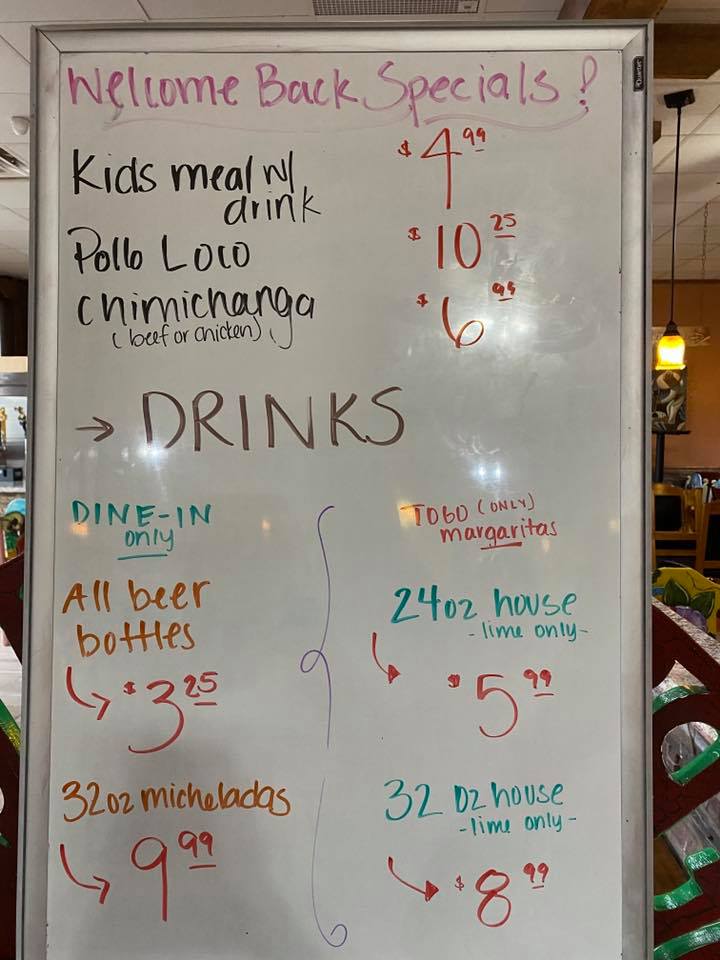 Welcome Back Specials!
Kids meal w/ drink $4.99
Pollo Loco $10.25
Chimichanga $6.95
(beef or chicken)
→ DRINKS
DINE-IN
only
All beer
bottles
$3.25
32oz micheladas
9.99
TOGO (ONLY)
margaritas
24oz house
-lime only-
$5.99
32 oz house
-lime only-
$8.99